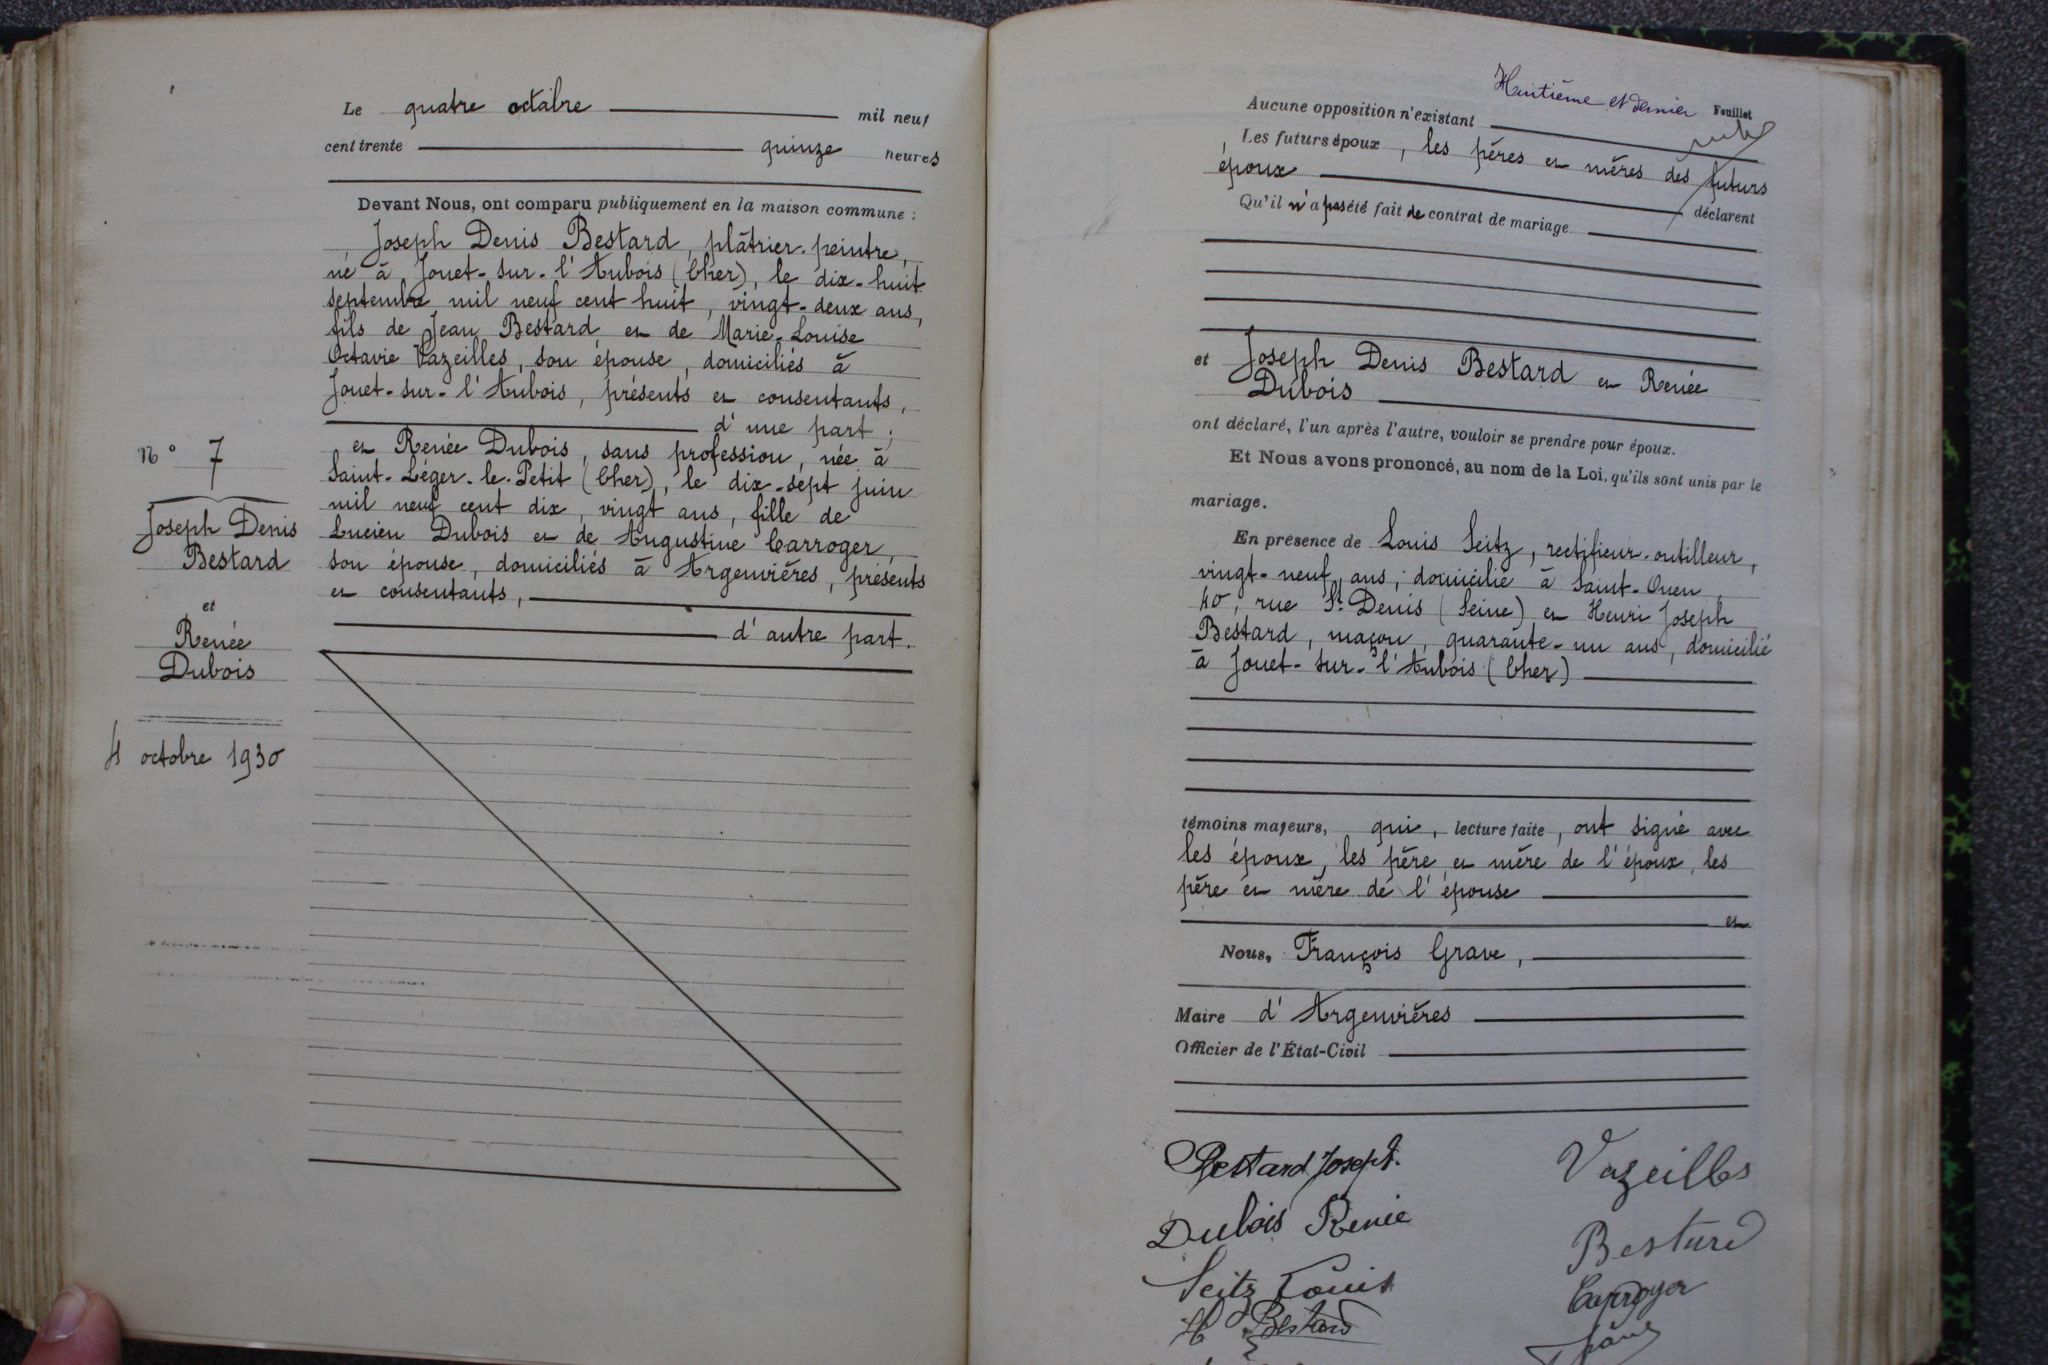 Le quatre octobre mil neuf
cent trente quinze heures
Devant Nous, ont comparu publiquement en la maison commune :
Joseph Denis Bestard, plâtrier-peintre,
né à Jouet-sur-l'Aubois (Cher), le dix-huit
septembre mil neuf cent huit, vingt-deux ans,
fils de Jean Bestard et de Marie-Louise
Octavie Vazeilles, son épouse, domiciliés à
Jouet-sur-l'Aubois, présents et consentants,
d'une part ;
et Renée Dubois, sans profession, née à
Saint-Léger-le-Petit (Cher), le dix-sept juin
mil neuf cent dix, vingt ans, fille de
Lucien Dubois et de Augustine Carroger,
son épouse, domiciliés à Argenvières, présents
et consentants,
d'autre part.
N° 7
Joseph Denis
Bestard
et
Renée
Dubois
4 octobre 1930
Huitième et dernier Feuillet
Aucune opposition n'existant
Les futurs époux, les pères et mères des futurs
époux déclarent
Qu'il n'a pas été fait de contrat de mariage
et Joseph Denis Bestard et Renée
Dubois
ont déclaré, l'un après l'autre, vouloir se prendre pour époux.
Et Nous avons prononcé, au nom de la Loi, qu'ils sont unis par le
mariage.
En présence de Louis Seitz, rectifieur-outilleur,
vingt-neuf ans, domicilié à Saint-Ouen,
40, rue St Denis (Seine) et Henri Joseph
Bestard, maçon, quarante-un ans, domicilié
à Jouet-sur-l'Aubois (Cher)
témoins majeurs, qui, lecture faite, ont signé avec
les époux, les père et mère de l'époux, les
père et mère de l'épouse
et
Nous, François Grave,
Maire d'Argenvières
Officier de l'État-Civil
Bestard Joseph.
Dubois Renée
Seitz Louis
H Bestard
Vazeilles
Bestard
Carroger